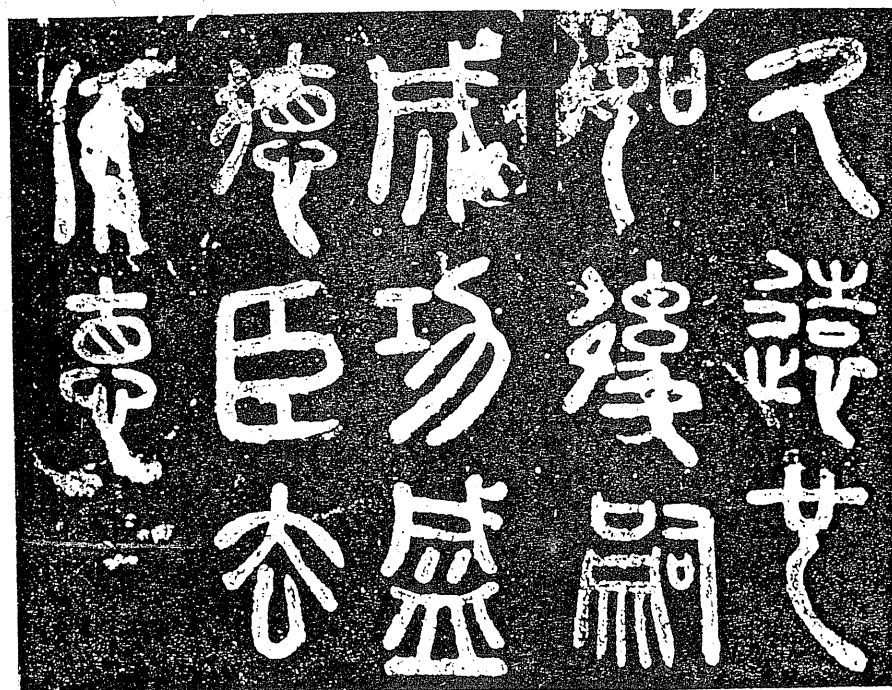 久遠也
如後嗣
成功盛
德臣去
疾悳